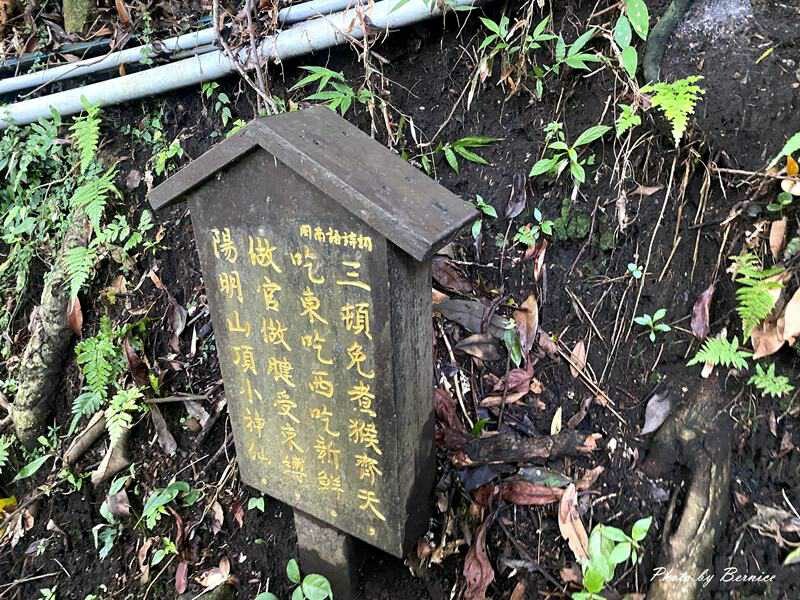 用南語誦切
三頓免煮猴齊天。
吃東吃西吃新鮮。
做官做腱受束縛。
陽明山頂小神仙。
Photo by Bernice